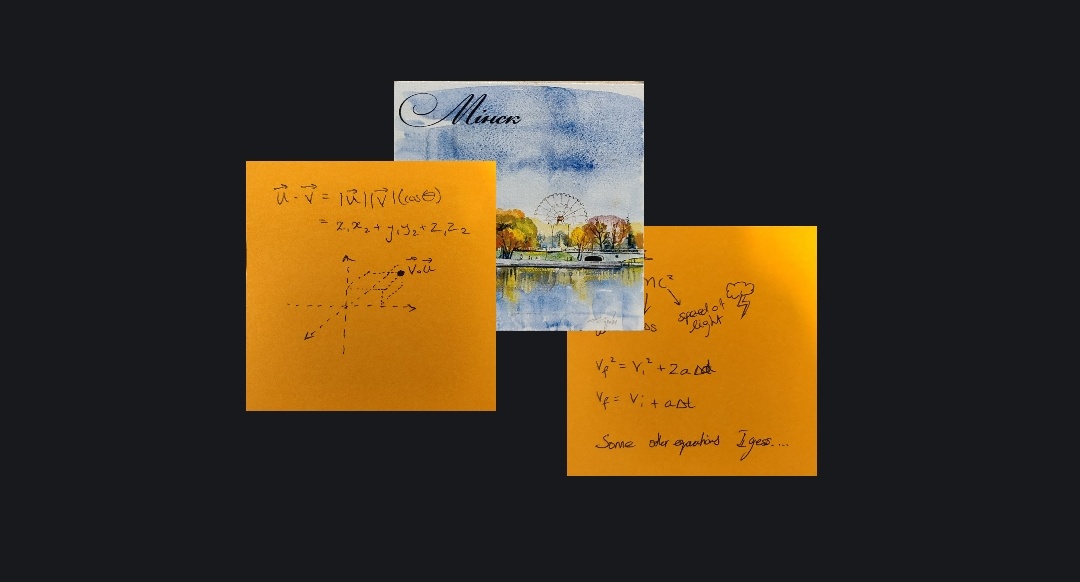 Мінск
u⃗ · v⃗ = |u⃗||v⃗|(cos θ)
= x₁x₂ + y₁y₂ + z₁z₂
v⃗·u⃗
mc²
speed of
light
V_f² = V_i² + 2aΔd
V_f = V_i + aΔt
Some other equations I gess....